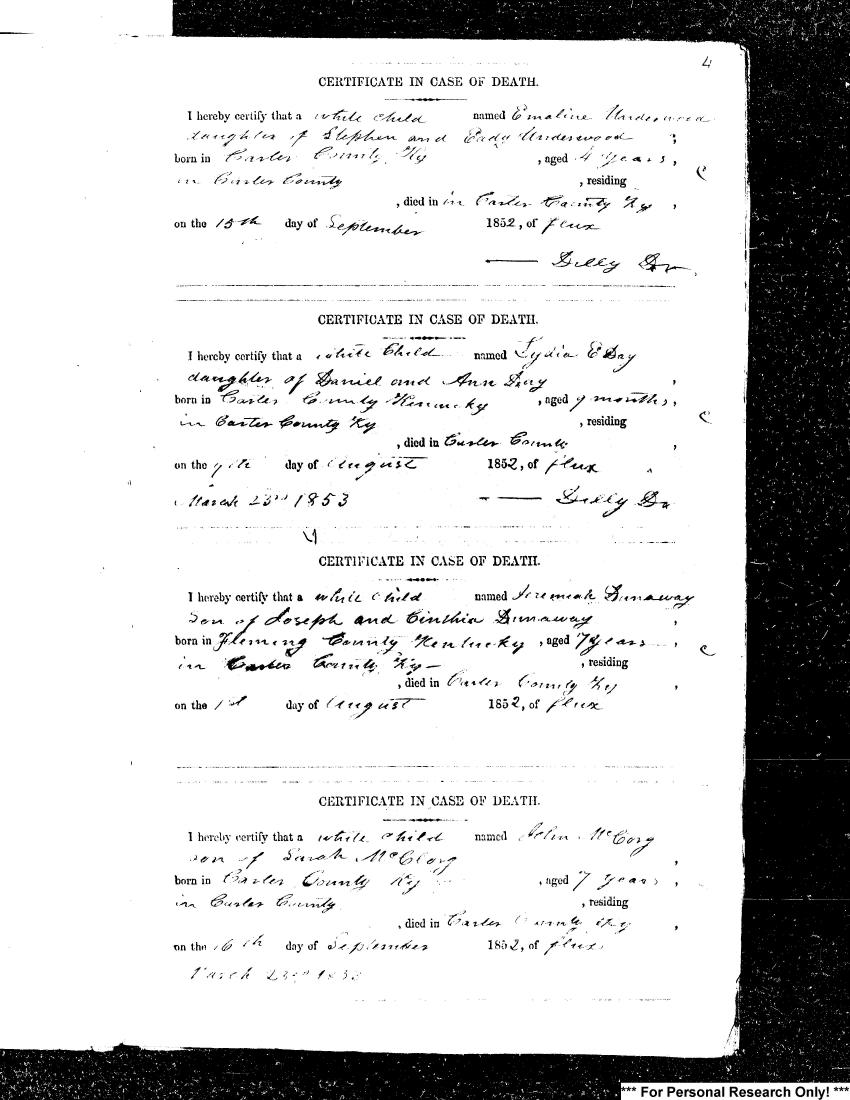 4
CERTIFICATE IN CASE OF DEATH.
I hereby certify that a white child named Emaline Underwood
daughter of Stephen and Eady Underwood ,
born in Carter County Ky , aged 4 years ,
in Carter County , residing
, died in in Carter County Ky ,
on the 15th day of September 1852, of flux
—— Dilly
CERTIFICATE IN CASE OF DEATH.
I hereby certify that a white Child named Lydia E Day
daughter of Daniel and Ann Day ,
born in Carter County Kentucky , aged 9 months ,
in Carter County Ky , residing
, died in Carter County ,
on the day of August 1852, of flux
March 23rd 1853 —— Dilly
CERTIFICATE IN CASE OF DEATH.
I hereby certify that a white child named Jeremiah Dunaway
son of Joseph and Cinthia Dunaway ,
born in Fleming County Kentucky , aged 7 Years ,
in Carter County Ky – , residing
, died in Carter County Ky ,
on the 1st day of August 1852, of flux
CERTIFICATE IN CASE OF DEATH.
I hereby certify that a white child named John McCorg
son of Sarah McClorg ,
born in Carter County Ky , aged 7 years ,
in Carter County , residing
, died in Carter County Ky ,
on the 16th day of September 1852, of flux
March 23rd 1853
*** For Personal Research Only! ***